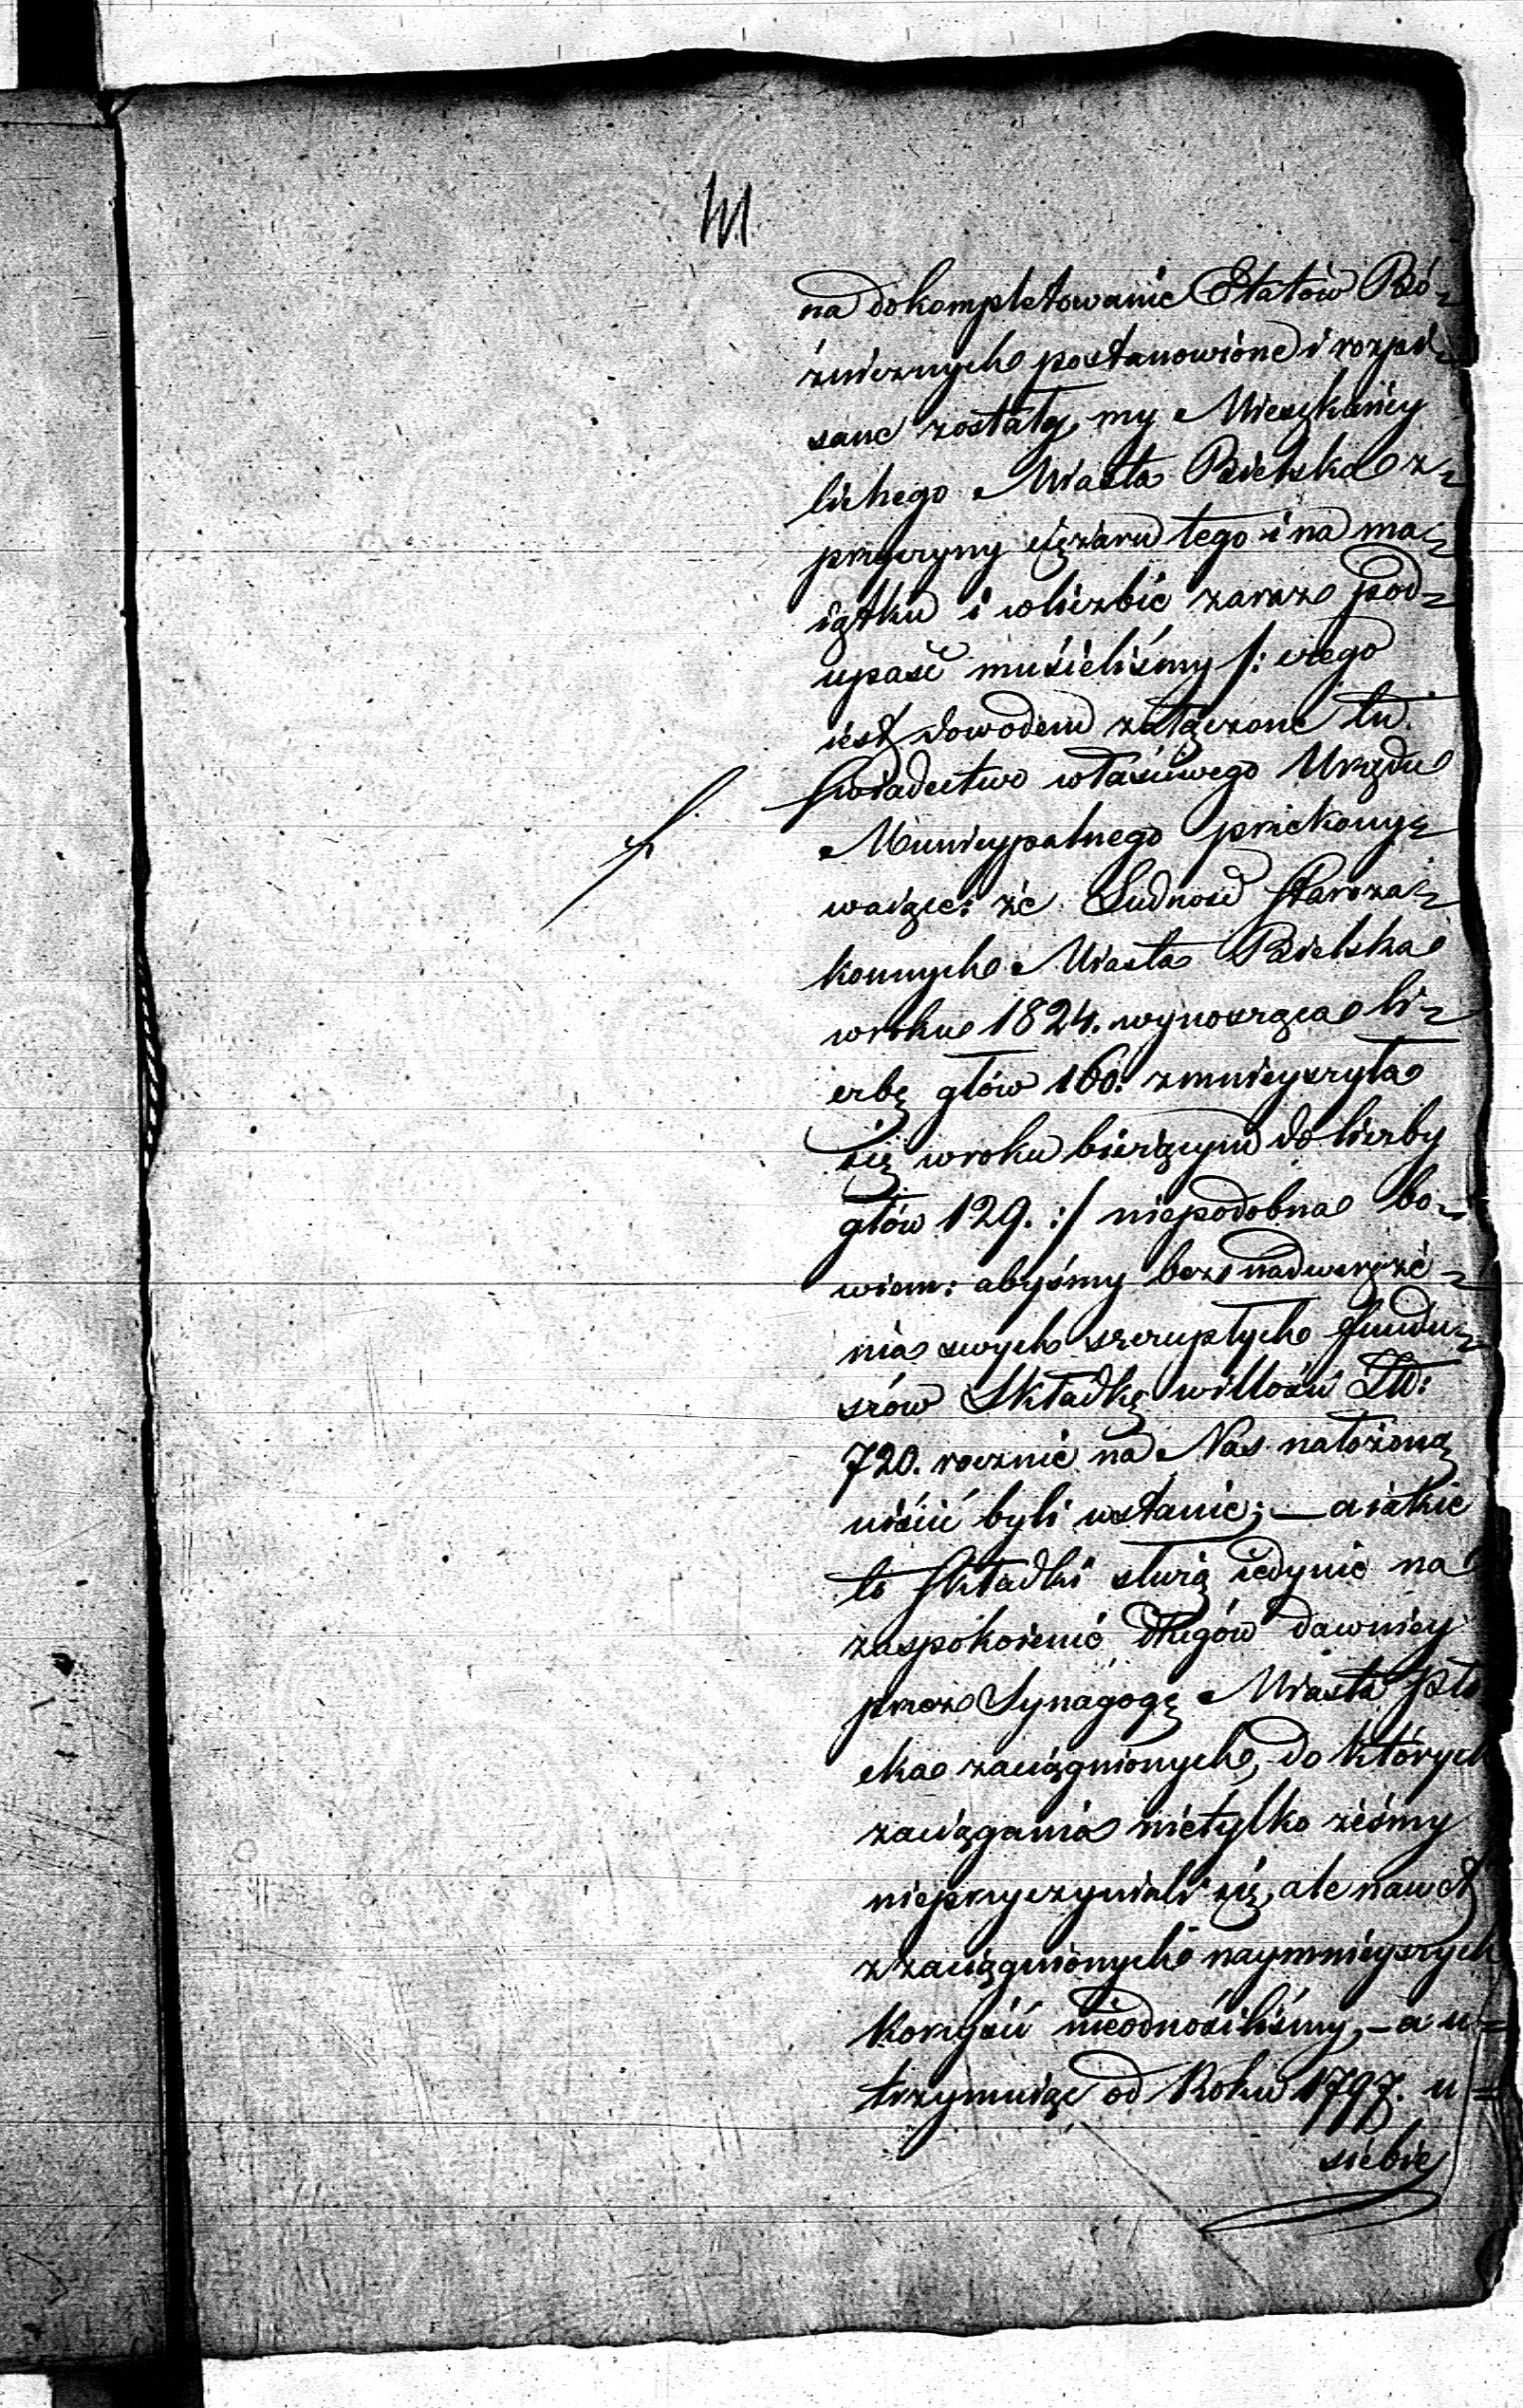 na dokompletowanie Etatów Bó-
źnicznych postanowione i rozpi-
sane zostały, my Mieszkańcy
lichego Miasta Bielska z-
przyczyny ciężaru tego i na ma-
iątku i wliczbie zaraz pod-
upaść musieliśmy /: czego
iest dowodem załączone tu
Swiadectwo właściwego Urzędu
Municypalnego przekony-
waiące: że Ludność Staroza-
konnych Miasta Bielska
wroku 1824. wynosząca li-
czbę głów 160: zmnieyszyła
się wroku bieżącym do liczby
głów 129. :/ niepodobna bo-
wiem: abyśmy bez nadwerężé-
nia swych szczupłych fundu-
szów Składkę willości Złt:
720. rocznie na Nas nałożoną
uiścić byli wstanie; — a iakie
to Składki służą iedynie na
zaspokoienie długów dawniey
przez Synagogę Miasta Pło
cka zaciągnionych, do których
zaciągania nietylko żeśmy
nieprzyczyniali się, ale nawet
z zaciągnionych naymnieyszych
korzyści nieodnośiliśmy, - a u=
trzymuiąc od Roku 1797. u=
siebie